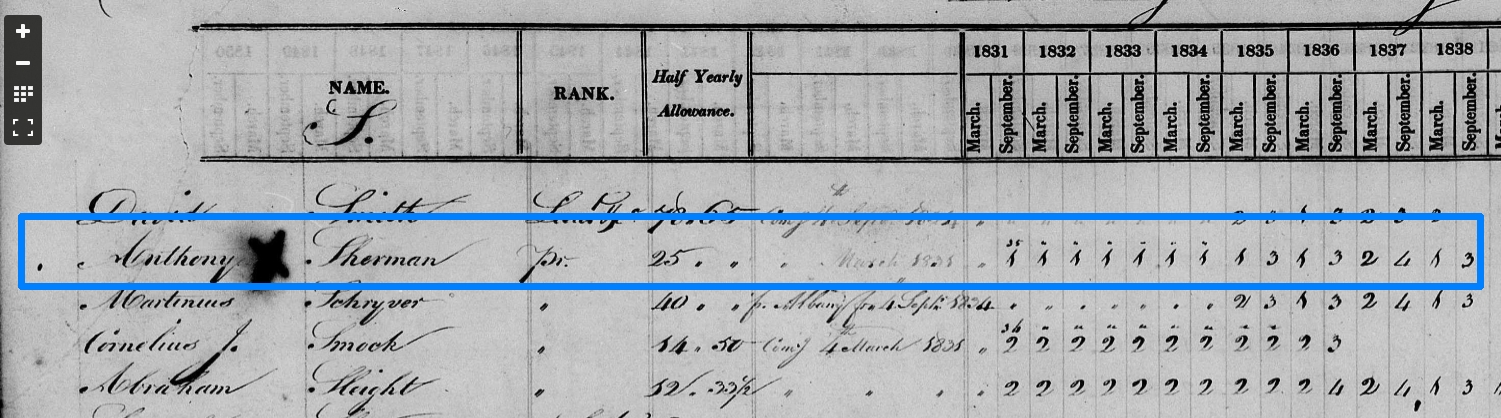 1831 1832 1833 1834 1835 1836 1837 1838
NAME. RANK. Half Yearly Allowance.
S.
March. September. March. September. March. September. March. September. March. September. March. September. March. September. March. September.
David Smith 78.65 2 3 1 3 2 3 2
Anthony Sherman Pr. 25 " " " March 1831 " 1 1 1 1 1 1 1 1 3 1 3 2 4 1 3
Martinus Schryver " 40 " " fr. Albany fr. 4 Sept. 1834 " " " " " " " 2 3 1 3 2 4 1 3
Cornelius J. Smock " 14.50 Comg 4th March 1831 " 2 2 2 2 2 2 2 2 2 2 3
Abraham Sleight " 52.33 " " " " 2 2 2 2 2 2 2 2 2 4 2 4 1 3